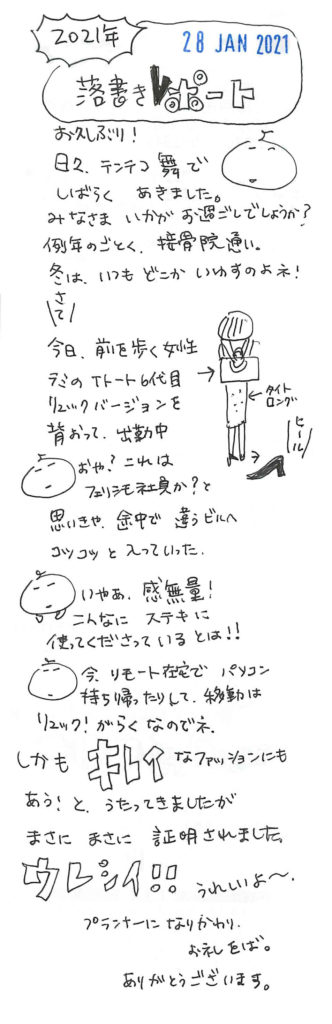 2021年
28 JAN 2021
落書きレポート
お久しぶり!
日々、テンテコ舞で
しばらく あきました。
みなさま いかがお過ごしでしょうか?
例年のごとく、接骨院通い。
冬は、いつも どこか いわすのよネ!
さて
今日、前を歩く女性
ラミのTトート6代目
リュックバージョンを
背おって、出勤中
タイト
ロング
ヒール
おや?これは
フェリシモ社員か?と
思いきや、途中で 違うビルへ
コツコツと入っていった.
いやぁ、感無量!
こんなに ステキに
使ってくださっているとは!!
今、リモート在宅で パソコン
持ち帰ったりして、移動は
リュック!がらくなのでネ.
しかも キレイなファッションにも
あう!と、うたってきましたが
まさに まさに 証明されました。
ウレシイ!! うれしいよ〜.
プランナーに なりかわり.
お礼をば。
ありがとうございます。